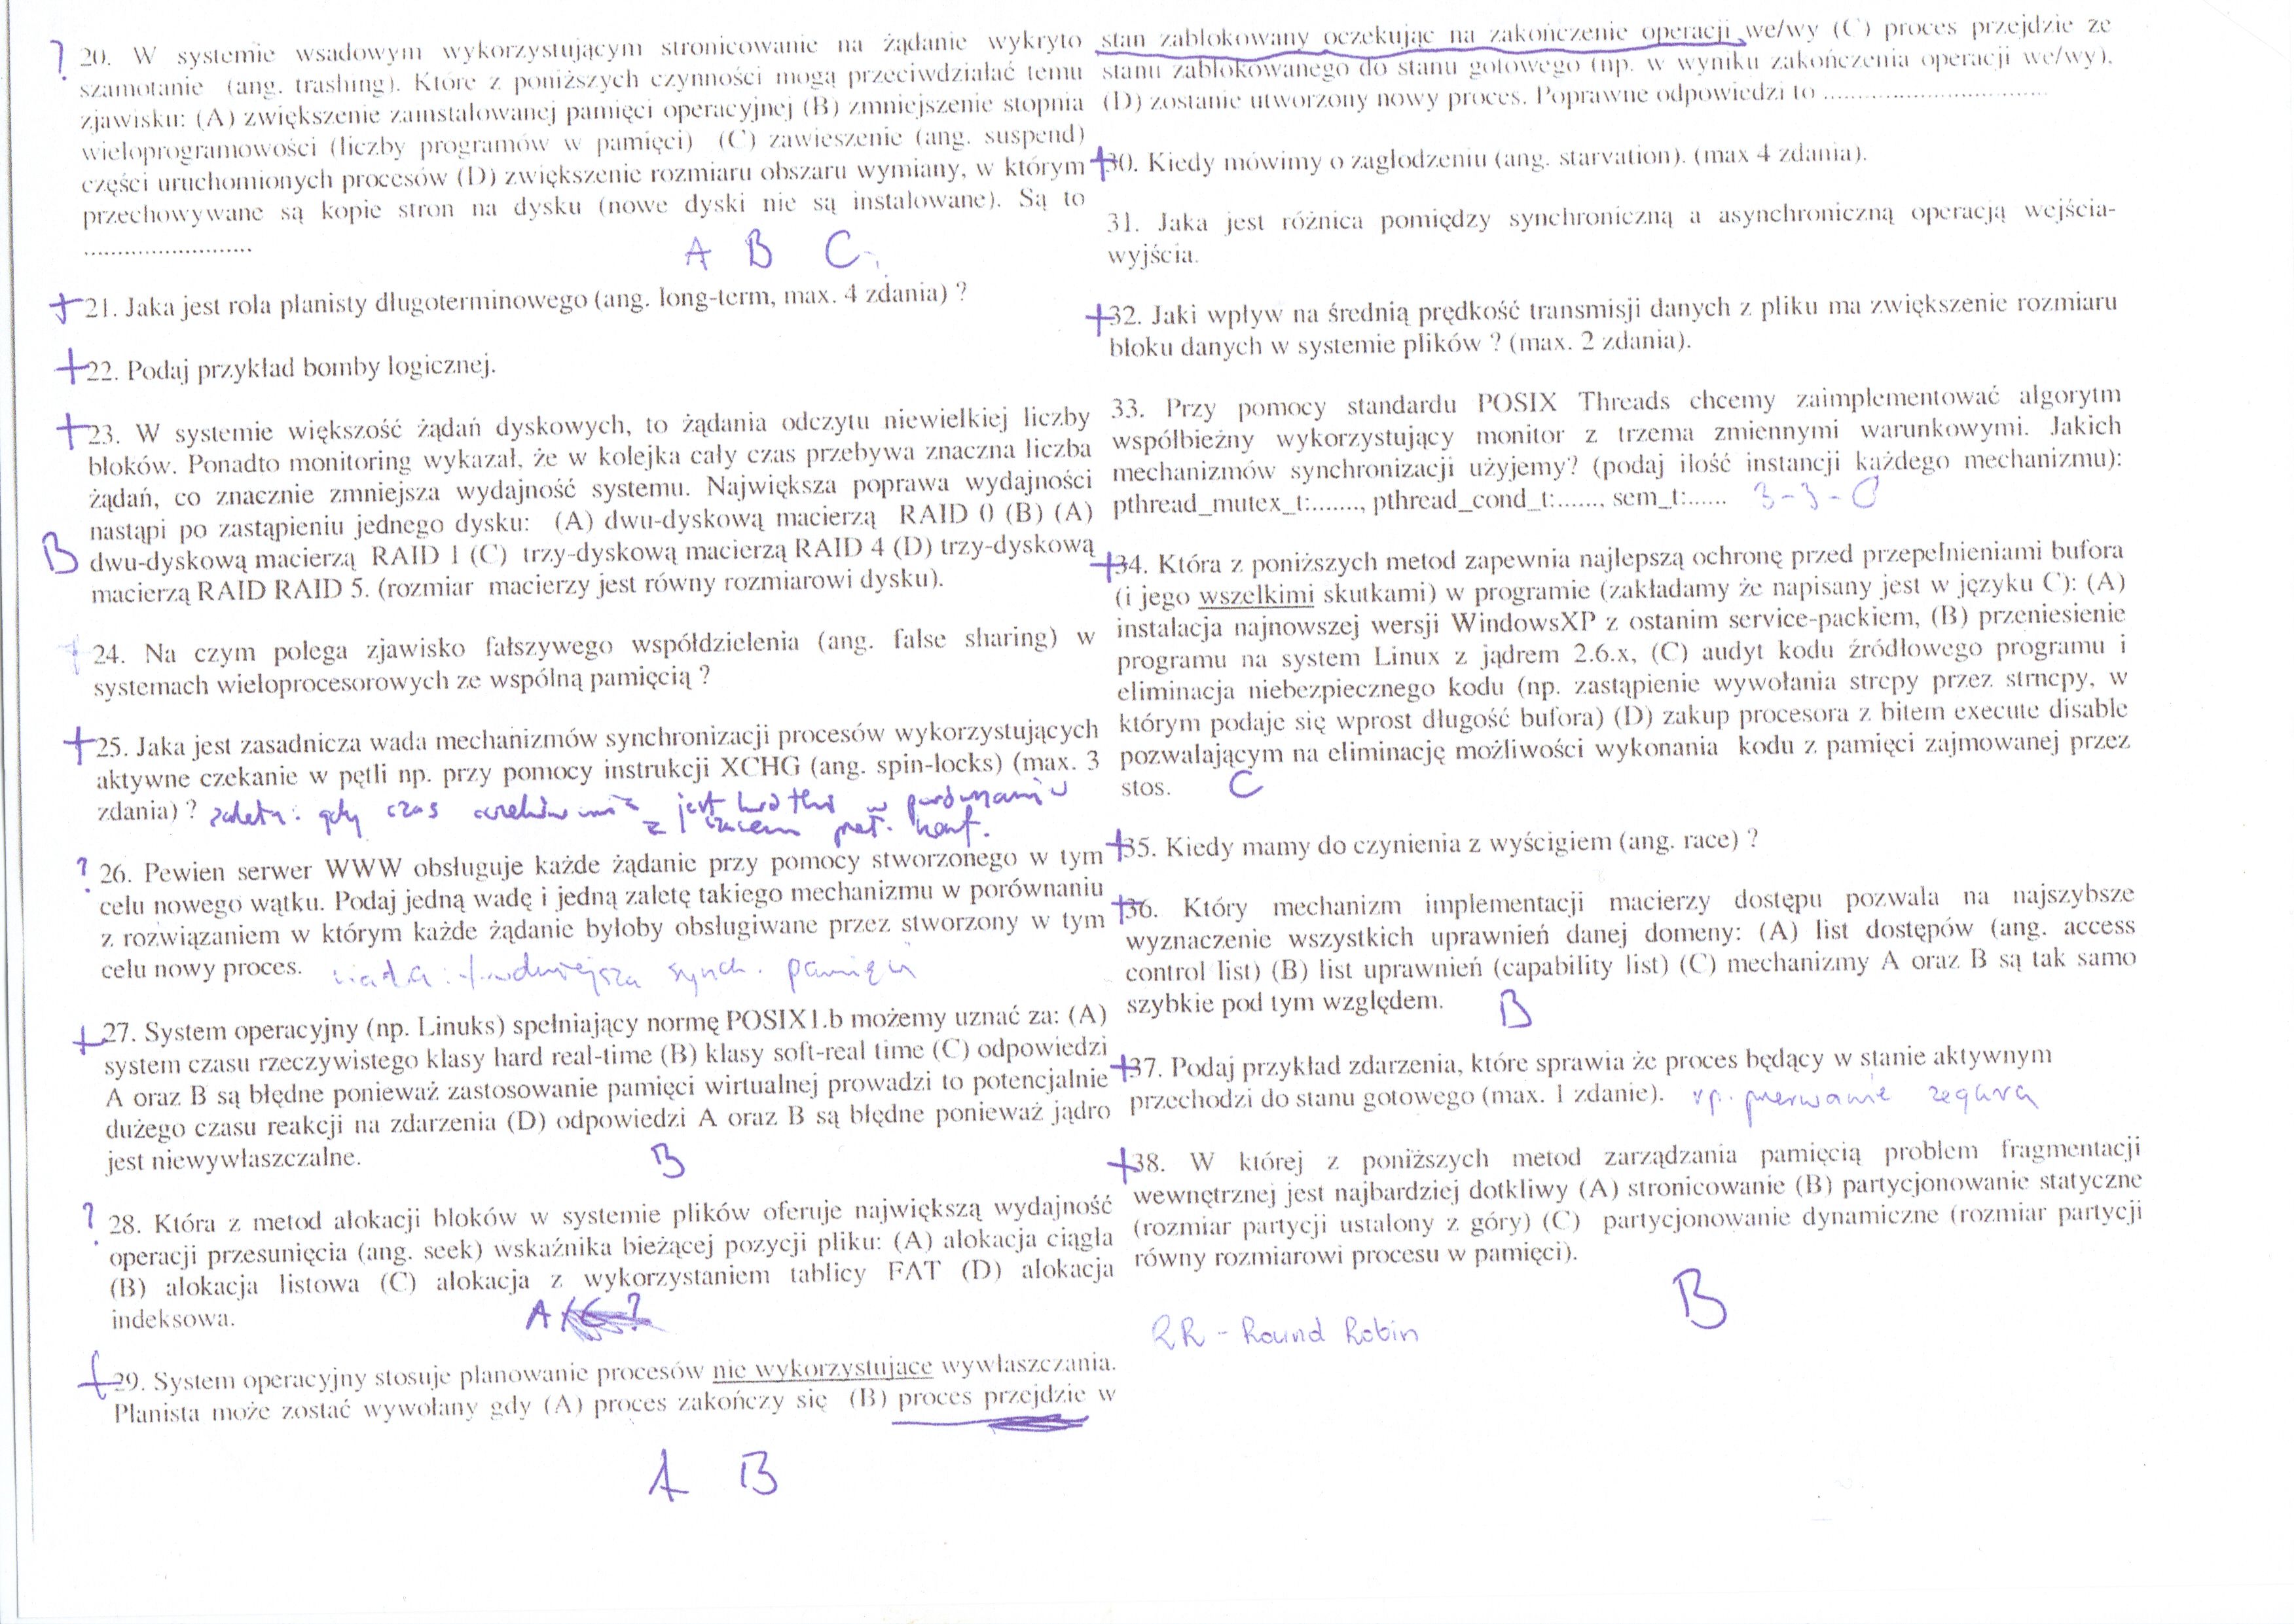 ? 20. W systemie wsadowym wykorzystującym stronicowanie na żądanie wykryto
szamotanie (ang. trashing). Które z poniższych czynności mogą przeciwdziałać temu
zjawisku: (A) zwiększenie zainstalowanej pamięci operacyjnej (B) zmniejszenie stopnia
wieloprogramowości (liczby programów w pamięci) (C) zawieszenie (ang. suspend)
części uruchomionych procesów (D) zwiększenie rozmiaru obszaru wymiany, w którym
przechowywane są kopie stron na dysku (nowe dyski nie są instalowane). Są to
..............................
A B C
+21. Jaka jest rola planisty długoterminowego (ang. long-term, max. 4 zdania) ?
+22. Podaj przykład bomby logicznej.
+23. W systemie większość żądań dyskowych, to żądania odczytu niewielkiej liczby
bloków. Ponadto monitoring wykazał, że w kolejka cały czas przebywa znaczna liczba
żądań, co znacznie zmniejsza wydajność systemu. Największa poprawa wydajności
nastąpi po zastąpieniu jednego dysku: (A) dwu-dyskową macierzą RAID 0 (B) (A)
B dwu-dyskową macierzą RAID 1 (C) trzy-dyskową macierzą RAID 4 (D) trzy-dyskową
macierzą RAID RAID 5. (rozmiar macierzy jest równy rozmiarowi dysku).
+ 24. Na czym polega zjawisko fałszywego współdzielenia (ang. false sharing) w
systemach wieloprocesorowych ze wspólną pamięcią ?
+25. Jaka jest zasadnicza wada mechanizmów synchronizacji procesów wykorzystujących
aktywne czekanie w pętli np. przy pomocy instrukcji XCHG (ang. spin-locks) (max. 3
zdania) ? zaleta: gdy czas oczekiwania jest krótki w porównaniu
z czasem przeł. kont.
? 26. Pewien serwer WWW obsługuje każde żądanie przy pomocy stworzonego w tym
celu nowego wątku. Podaj jedną wadę i jedną zaletę takiego mechanizmu w porównaniu
z rozwiązaniem w którym każde żądanie byłoby obsługiwane przez stworzony w tym
celu nowy proces. wada: trudniejsza synch. pamięci
+27. System operacyjny (np. Linuks) spełniający normę POSIX1.b możemy uznać za: (A)
system czasu rzeczywistego klasy hard real-time (B) klasy soft-real time (C) odpowiedzi
A oraz B są błędne ponieważ zastosowanie pamięci wirtualnej prowadzi to potencjalnie
dużego czasu reakcji na zdarzenia (D) odpowiedzi A oraz B są błędne ponieważ jądro
jest niewywłaszczalne. B
? 28. Która z metod alokacji bloków w systemie plików oferuje największą wydajność
operacji przesunięcia (ang. seek) wskaźnika bieżącej pozycji pliku: (A) alokacja ciągła
(B) alokacja listowa (C) alokacja z wykorzystaniem tablicy FAT (D) alokacja
indeksowa. A
+29. System operacyjny stosuje planowanie procesów nie wykorzystujące wywłaszczania.
Planista może zostać wywołany gdy (A) proces zakończy się (B) proces przejdzie w
A B
stan zablokowany oczekując na zakończenie operacji we/wy (C) proces przejdzie ze
stanu zablokowanego do stanu gotowego (np. w wyniku zakończenia operacji we/wy),
(D) zostanie utworzony nowy proces. Poprawne odpowiedzi to ........................................
+30. Kiedy mówimy o zagłodzeniu (ang. starvation). (max 4 zdania).
31. Jaka jest różnica pomiędzy synchroniczną a asynchroniczną operacją wejścia-
wyjścia.
+32. Jaki wpływ na średnią prędkość transmisji danych z pliku ma zwiększenie rozmiaru
bloku danych w systemie plików ? (max. 2 zdania).
33. Przy pomocy standardu POSIX Threads chcemy zaimplementować algorytm
współbieżny wykorzystujący monitor z trzema zmiennymi warunkowymi. Jakich
mechanizmów synchronizacji użyjemy? (podaj ilość instancji każdego mechanizmu):
pthread_mutex_t:......., pthread_cond_t:......., sem_t:...... 3 - 3 - 0
+34. Która z poniższych metod zapewnia najlepszą ochronę przed przepełnieniami bufora
(i jego wszelkimi skutkami) w programie (zakładamy że napisany jest w języku C): (A)
instalacja najnowszej wersji WindowsXP z ostanim service-packiem, (B) przeniesienie
programu na system Linux z jądrem 2.6.x, (C) audyt kodu źródłowego programu i
eliminacja niebezpiecznego kodu (np. zastąpienie wywołania strcpy przez strncpy, w
którym podaje się wprost długość bufora) (D) zakup procesora z bitem execute disable
pozwalającym na eliminację możliwości wykonania kodu z pamięci zajmowanej przez
stos. C
+35. Kiedy mamy do czynienia z wyścigiem (ang. race) ?
+36. Który mechanizm implementacji macierzy dostępu pozwala na najszybsze
wyznaczenie wszystkich uprawnień danej domeny: (A) list dostępów (ang. access
control list) (B) list uprawnień (capability list) (C) mechanizmy A oraz B są tak samo
szybkie pod tym względem. B
+37. Podaj przykład zdarzenia, które sprawia że proces będący w stanie aktywnym
przechodzi do stanu gotowego (max. 1 zdanie). np. przerwanie zegara
+38. W której z poniższych metod zarządzania pamięcią problem fragmentacji
wewnętrznej jest najbardziej dotkliwy (A) stronicowanie (B) partycjonowanie statyczne
(rozmiar partycji ustalony z góry) (C) partycjonowanie dynamiczne (rozmiar partycji
równy rozmiarowi procesu w pamięci).
B
RR - Round Robin